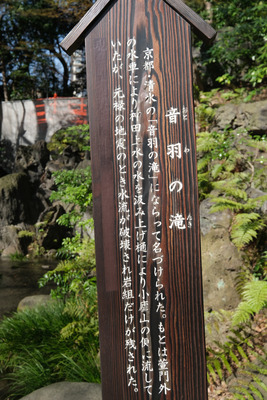 音羽の滝
おとわ
たき
京都・清水の「音羽の滝」にならって名づけられた。もとは萱門外
の水車により神田上水の水を汲み上げ樋により小廬山の側に流して
いたが、元禄の地震のとき水流が破壊され岩組だけが残された。